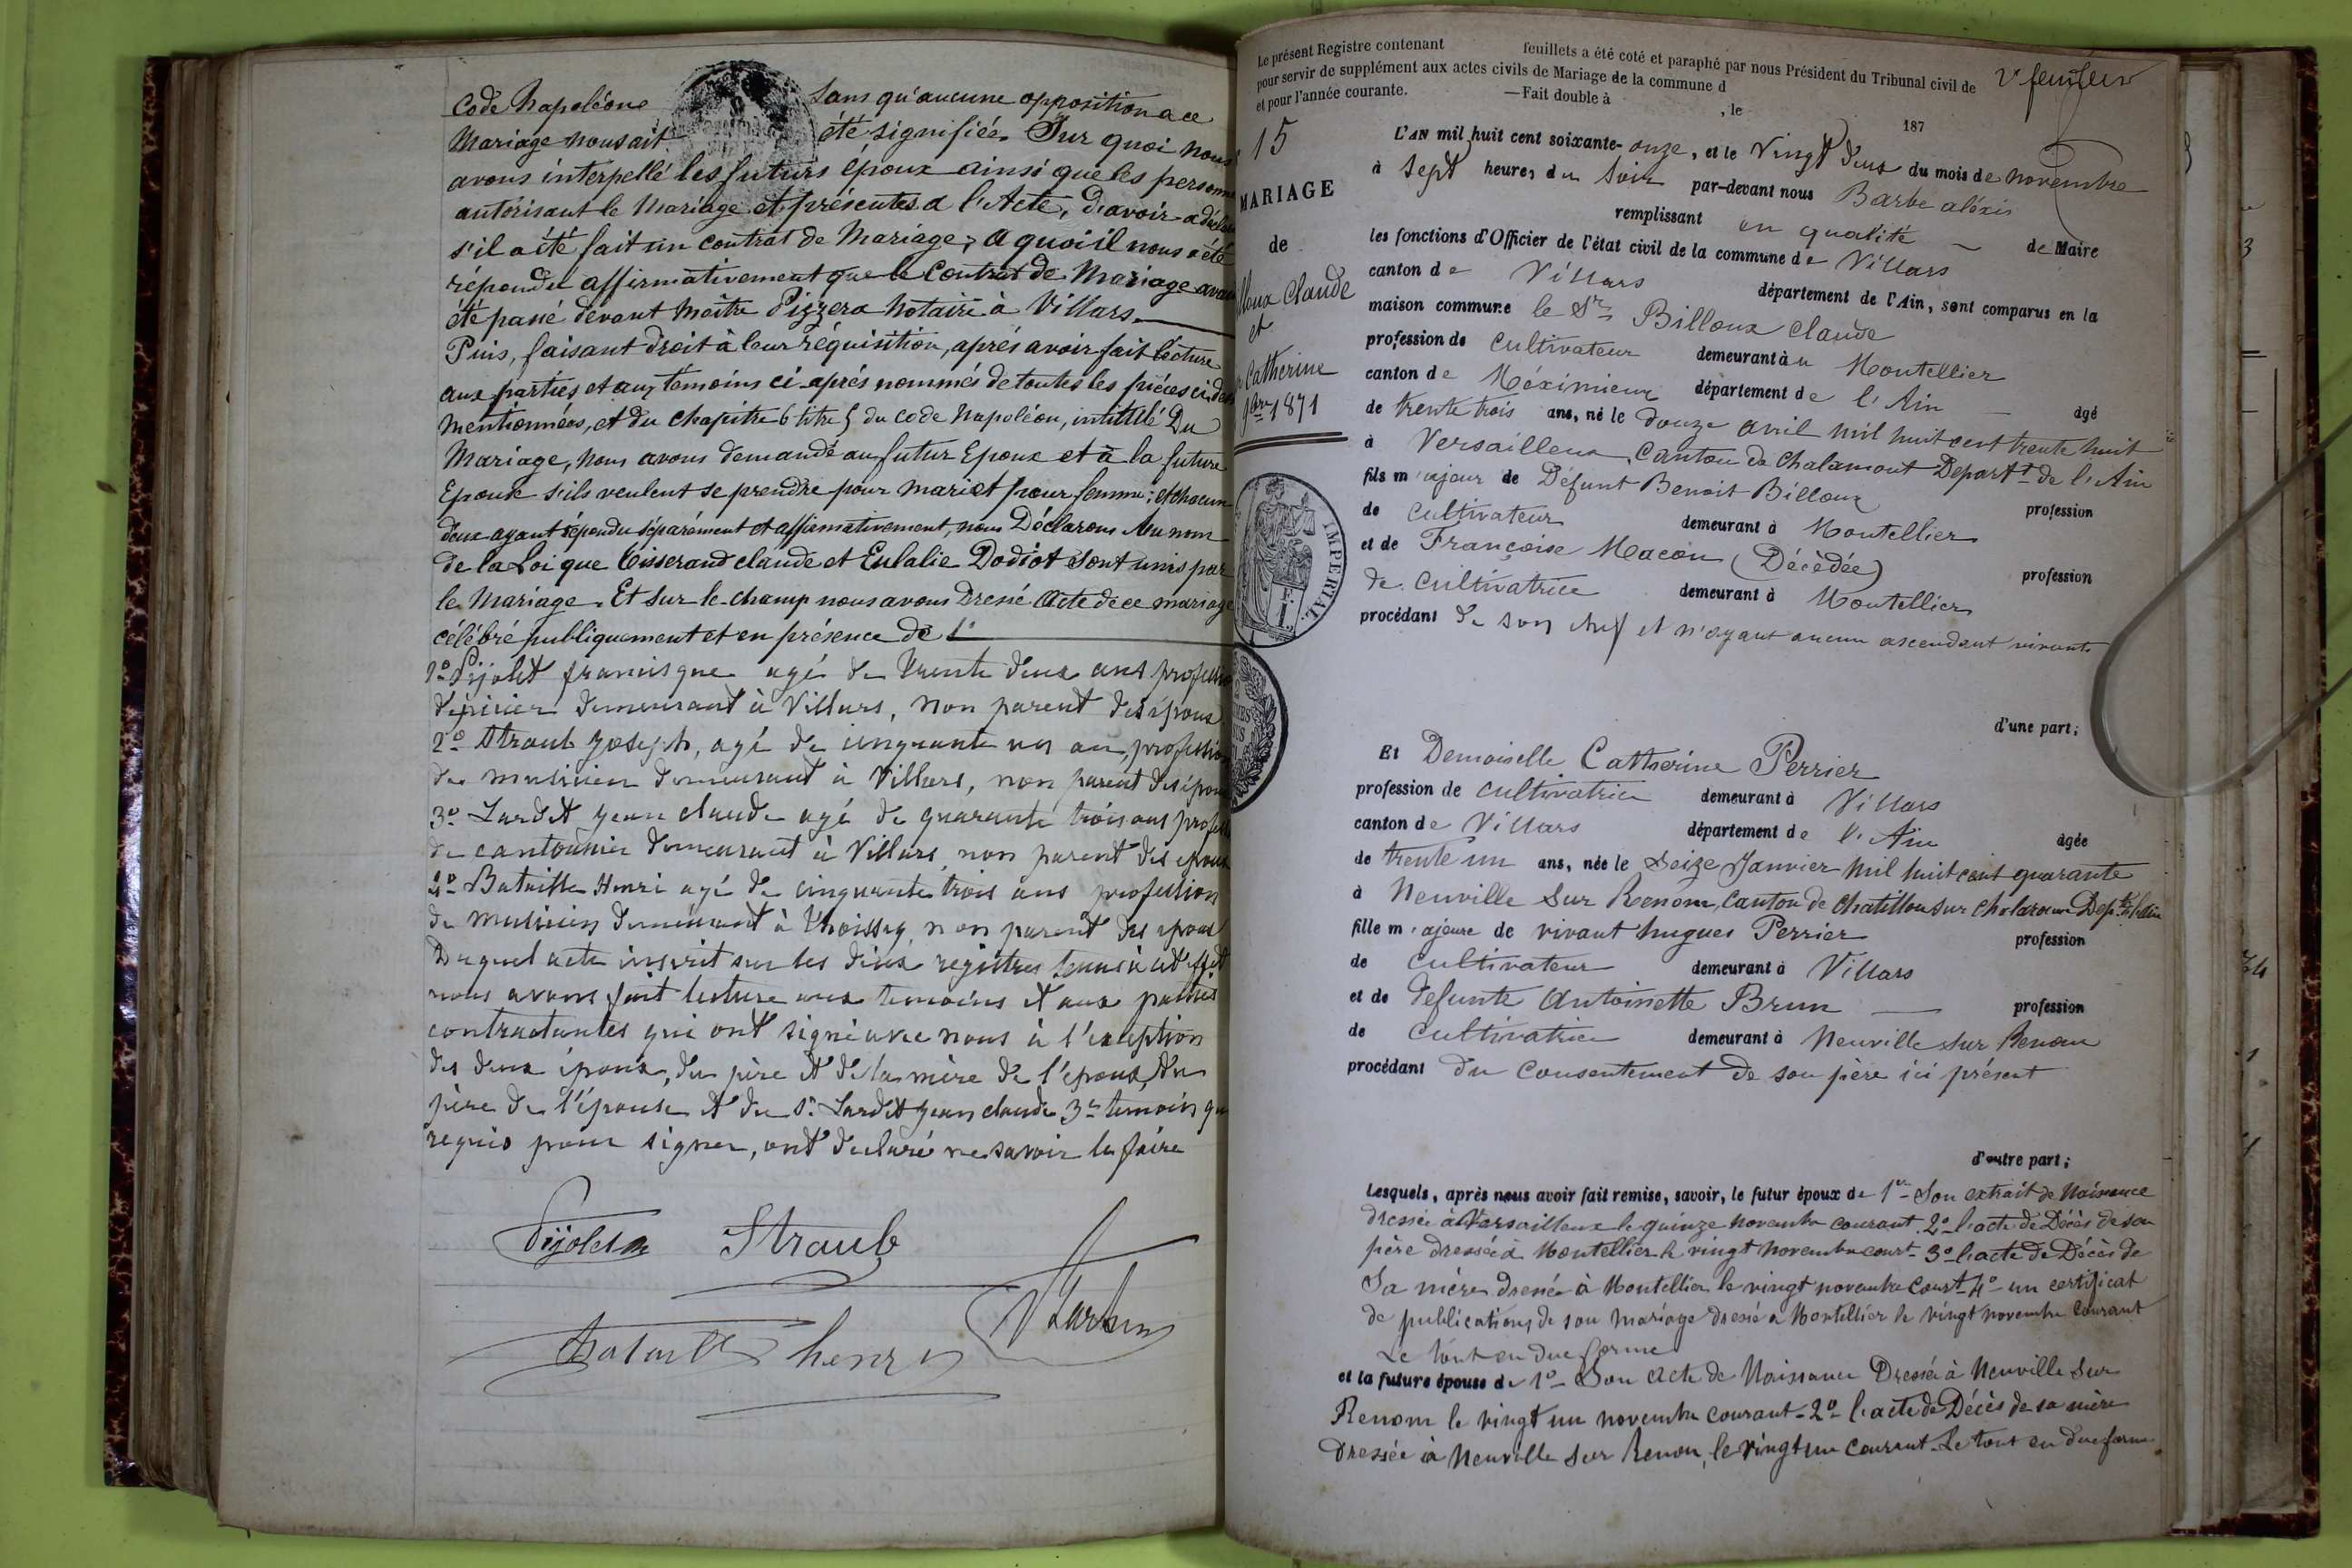 Code Napoléone Sans qu'aucune opposition a ce
Mariage nous ait été signifiée. Sur quoi nous
avons interpellé les futurs époux ainsi que les personnes
autorisant le Mariage et présentes a l'Acte, d'avoir a déclarer
s'il a été fait un contrat de Mariage; a quoi il nous a été
répondu affirmativement que le Contrat de Mariage avait
été passé dévant Maître Pizzera Notaire à Villars.
Puis, faisant droit à leur réquisition, aprés avoir fait lecture
aux parties et aux témoins ci-aprés nommés de toutes les piéces ci-dessus
Mentionnées, et du chapitre 6 titre 5 du Code Napoléon, intitulé Du
Mariage, Nous avons demandé au futur Epoux et à la future
Epouse s'ils veulent se prendre pour mari et pour femme; et chacun
deux ayant répondu séparément et affirmativement, nous Déclarons Au nom
de la Loi que Tisserand claude et Eulalie Dodiot sont unis par
le Mariage. Et sur le-champ nous avons Dressé Acte de ce mariage
célébré publiquement et en présence de
1° Pijolet francisque agé de trente deux ans profession
d'épicier demeurant à Villars, non parent des époux
2° Straub Joseph, agé de cinquante un an, profession
de musicien demeurant à Villars, non parent des époux
3° Lardet Jean claude agé de quarante trois ans profession
de cantonnier demeurant à Villars non parent des epoux
4° Bataille Henri agé de cinquante trois ans profession
de musicien demeurant à Thoissey, non parent des epoux
Duquel acte inscrit sur les deux registres tenus à cet effet
nous avons fait lecture aux temoins et aux parties
contractantes qui ont signé avec nous à l'exception
des deux époux, du père et de la mère de l'epoux, du
père de l'épouse et du Sr Lardet Jean claude 3e temoin qui
requis pour signer, ont déclaré ne savoir le faire
Pijolet Straub
Bataille henri Barbe
Le présent Registre contenant feuillets a été coté et paraphé par nous Président du Tribunal civil de
pour servir de supplément aux actes civils de Mariage de la commune d
et pour l'année courante. —Fait double à , le 187
2e feuillet
15
MARIAGE
de
Billoux Claude
et
Catherine
9bre 1871
IMPERIAL
L'AN mil huit cent soixante-onze, et le Vingt deux du mois de novembre
à Sept heures du Soir par-devant nous Barbe aléxis
remplissant en qualité de Maire
les fonctions d'Officier de l'état civil de la commune de Villars
canton de Villars département de l'Ain, sont comparus en la
maison commune le Sr Billoux claude
profession de Cultivateur demeurant à Montellier
canton de Méximieux département de l'Ain agé
de trente trois ans, né le douze avril mil huit cent trente huit
à Versailleux, Canton de Chalamont Départt de l'Ain
fils majeur de Défunt Benoit Billoux profession
de Cultivateur demeurant à Montellier
et de Françoise Macon (Décèdée) profession
de Cultivatrice demeurant à Montellier
procédant de son chef et n'ayant aucun ascendant vivant
d'une part;
Et Demoiselle Catherine Perrier
profession de Cultivatrice demeurant à Villars
canton de Villars département de l'Ain agée
de trente un ans, née le Seize Janvier mil huit cent quarante
à Neuville Sur Renom, Canton de Chatillon sur Chalaronne Dept de l'Ain
fille majeure de vivant hugues Perrier profession
de Cultivateur demeurant à Villars
et de défunte Antoinette Brun profession
de Cultivatrice demeurant à Neuville sur Renom
procédant du Consentement de son père ici présent
d'autre part;
Lesquels, après nous avoir fait remise, savoir, le futur époux de 1° Son extrait de Naissance
dressée à Versailleux le quinze novembre courant 2° l'acte de Décès de son
père dressée à Montellier le vingt novembre court 3° l'acte de Décès de
Sa mère dressée à Montellier le vingt novembre Court 4° un certificat
de publications de son mariage dressé a Montellier le vingt novembre Courant
Le tout en due forme
et la future épouse de 1° Son Acte de Naissance Dressée à Neuville Sur
Renom le vingt un novembre courant. 2° l'acte de Décès de sa mère
dressée à Neuville Sur Renom, le vingt un courant. Le tout en due forme.